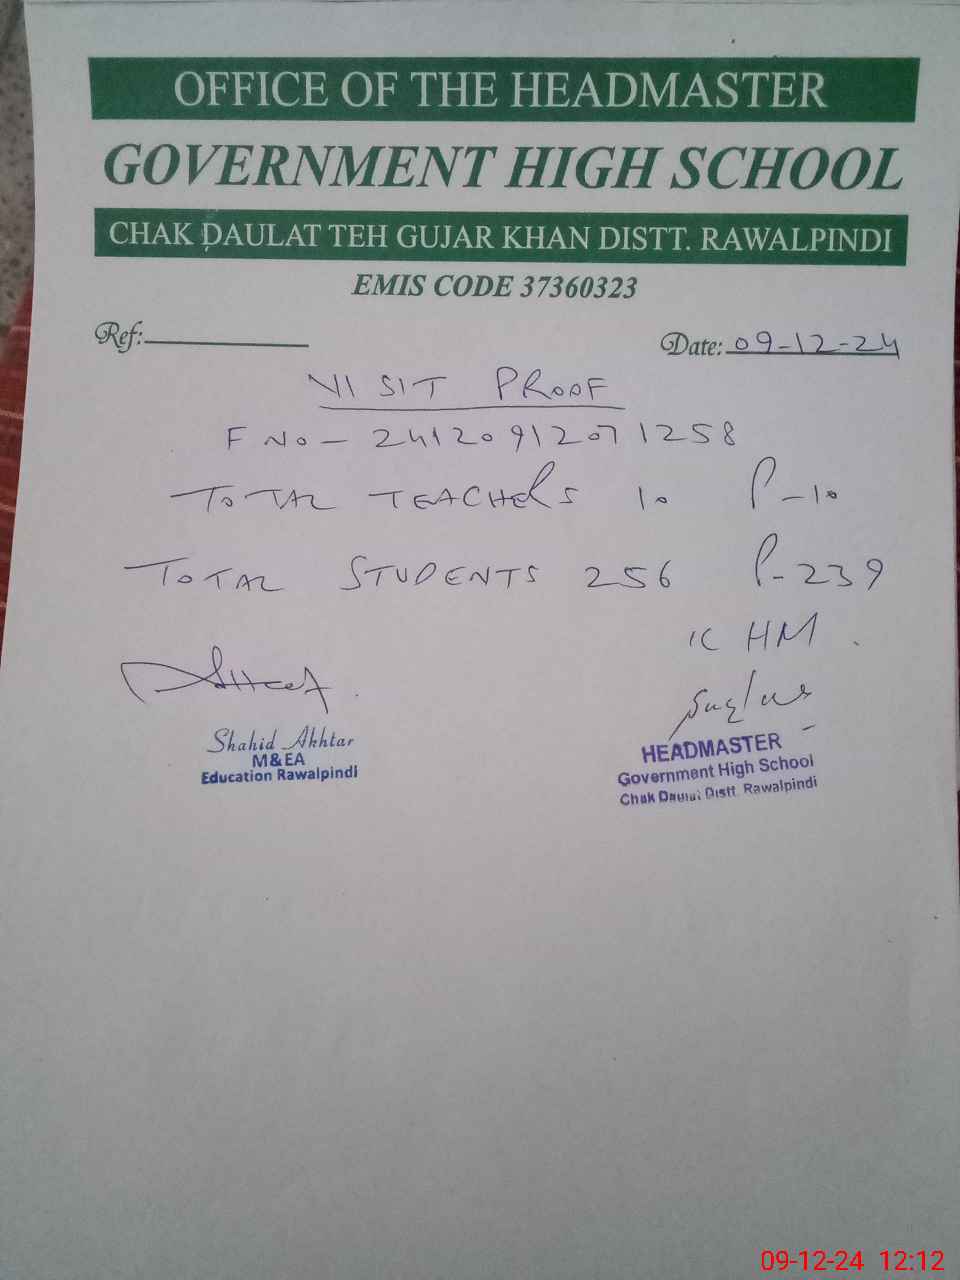 OFFICE OF THE HEADMASTER
GOVERNMENT HIGH SCHOOL
CHAK DAULAT TEH GUJAR KHAN DISTT. RAWALPINDI
EMIS CODE 37360323
Ref:
Date: 09-12-24
VISIT PROOF
F NO - 24120912071258
TOTAL TEACHERS 10 P-10
TOTAL STUDENTS 256 P-239
IC HM
Shahid Akhtar
M&EA
Education Rawalpindi
HEADMASTER
Government High School
Chak Daulat Distt. Rawalpindi
09-12-24 12:12